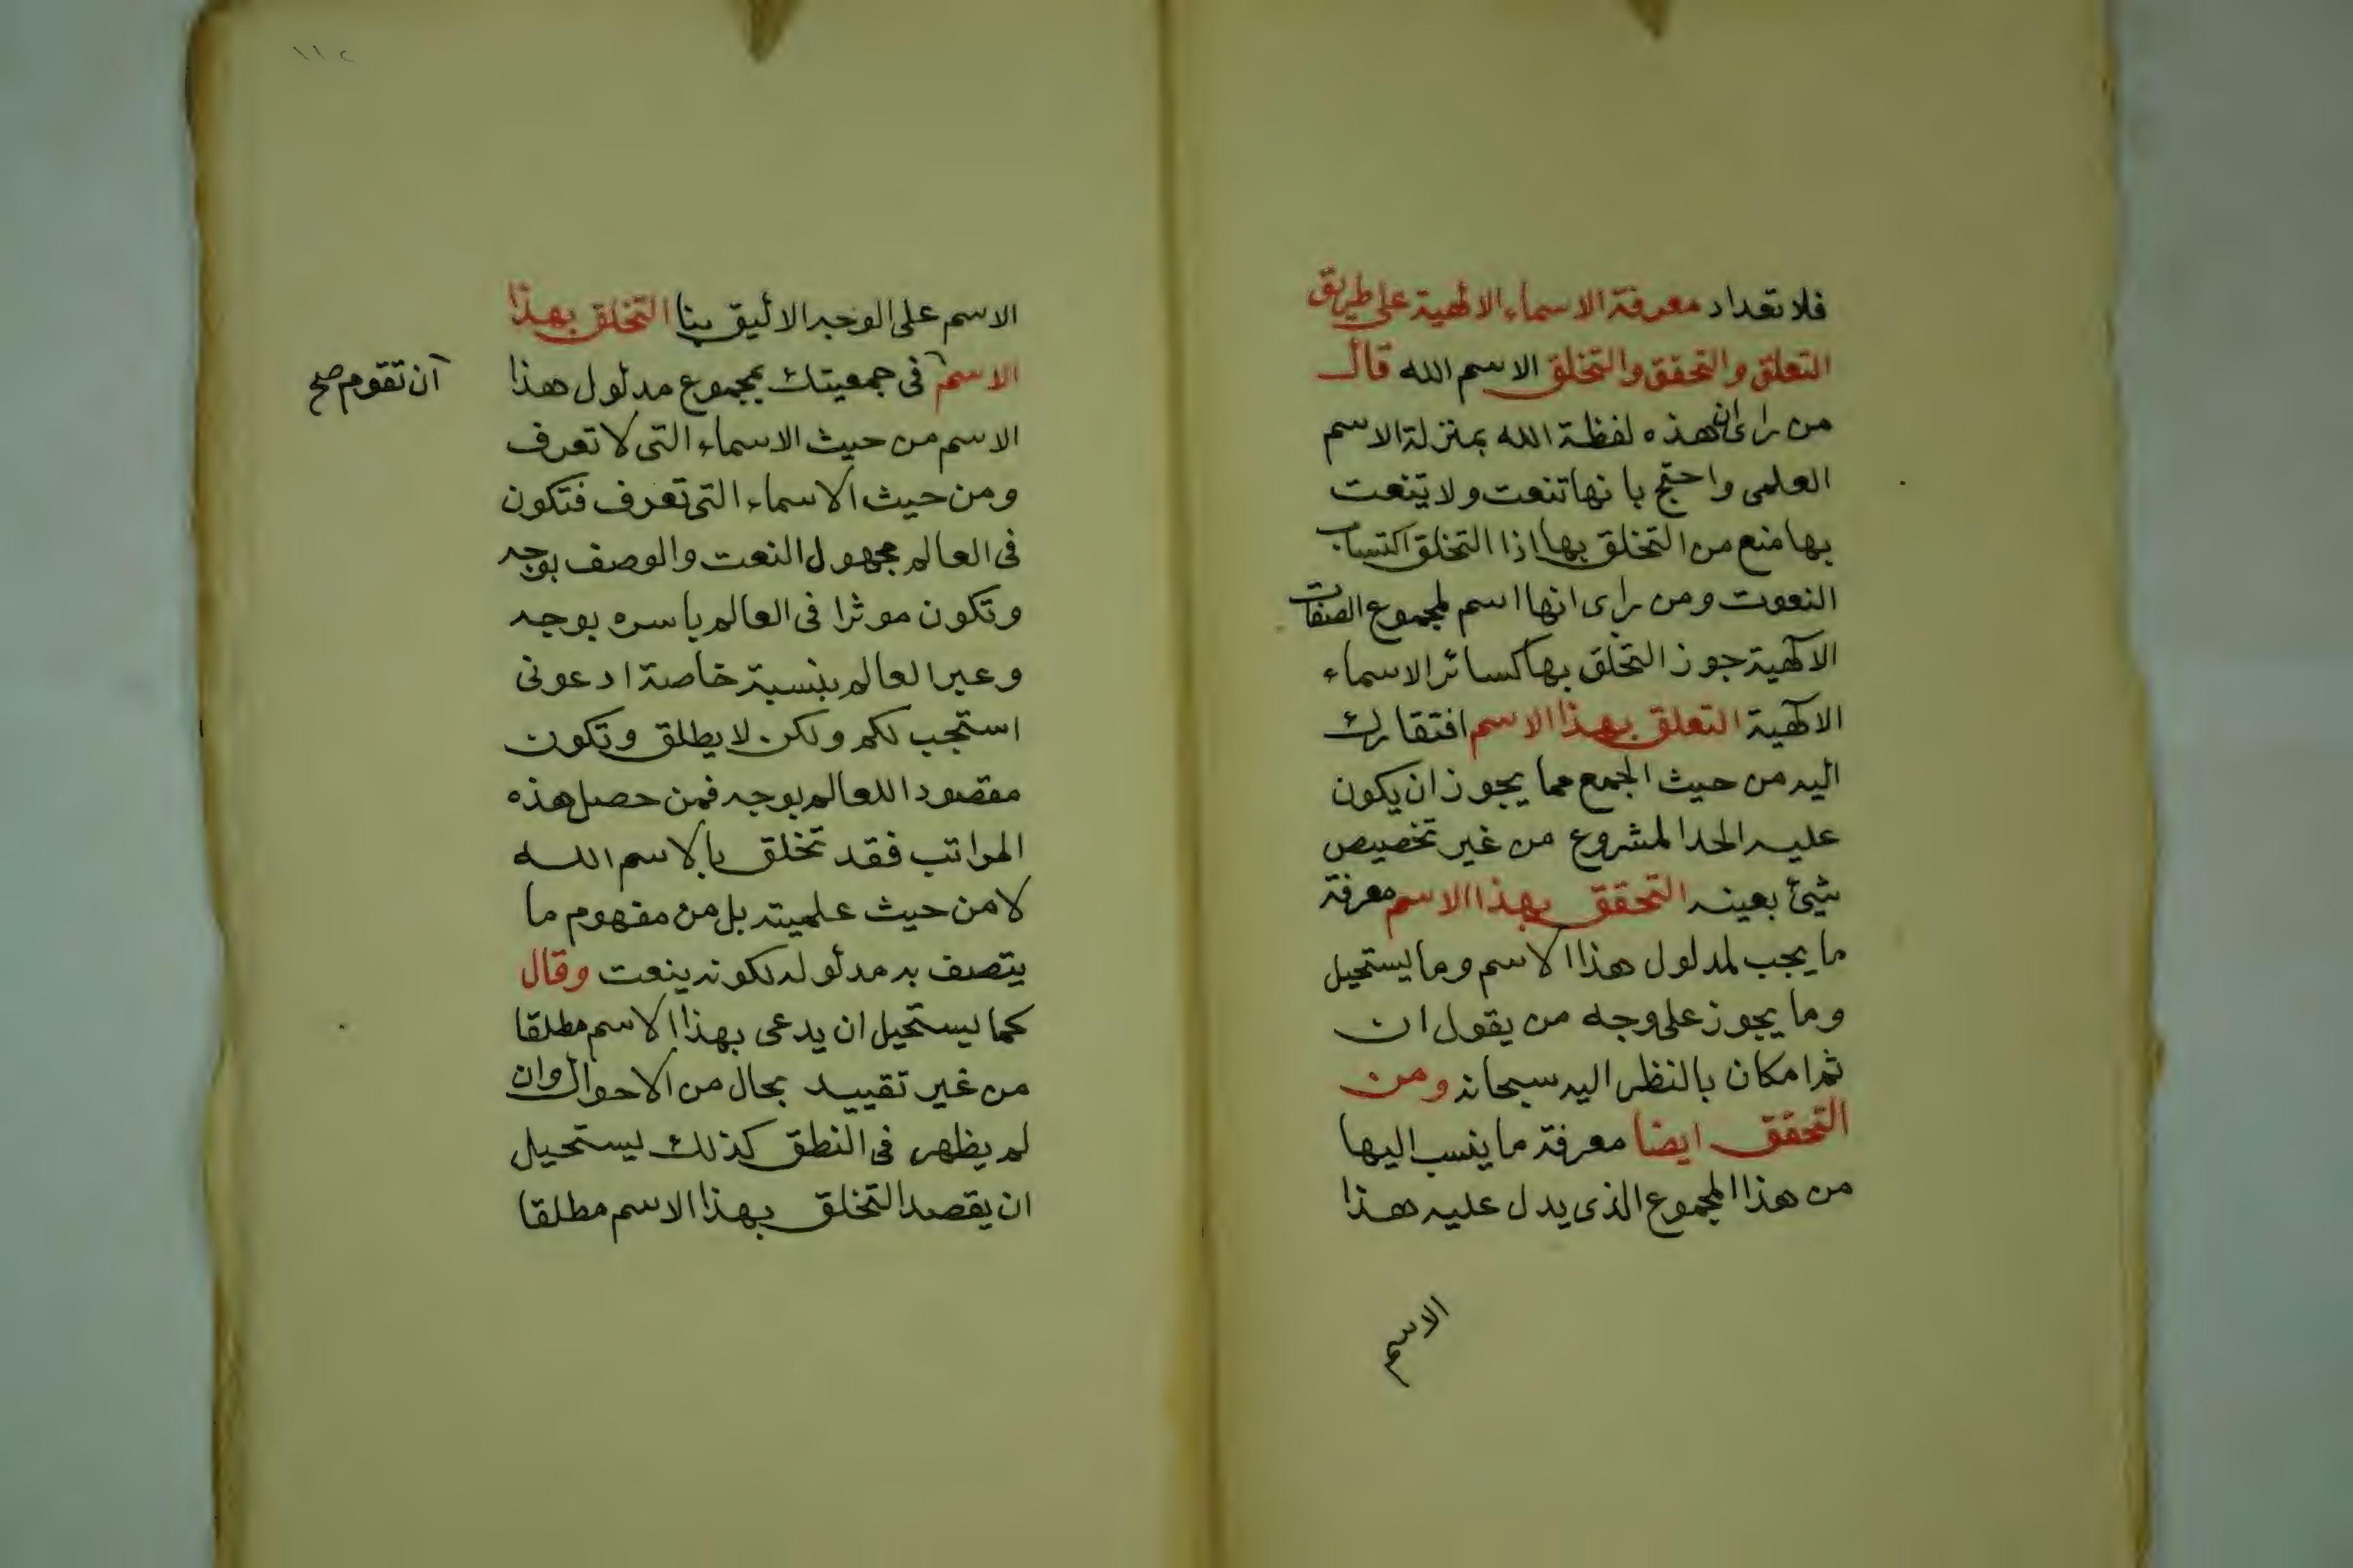 فلا تعداد معرفة الاسماء الالهية على طريق
التعلق والتحقق والتخلق الاسم الله قال
من راى ان هذه لفظة الله بمنزلة الاسم
العلمى واحتج بانها تنعت ولا ينعت
بها منع من التخلق بها اذا التخلق اكتساب
النعوت ومن راى انها اسم لمجموع الصفات
الالهية جوز التخلق بها كسائر الاسماء
الالهية التعلق بهذا الاسم افتقارك
اليه من حيث الجمع مما يجوز ان يكون
عليه الحد المشروع من غير تخصيص
شيئ بعينه التحقق بهذا الاسم معرفة
ما يجب لمدلول هذا الاسم وما يستحيل
وما يجوز على وجه من يقول ان
ثم امكان بالنظر اليه سبحانه ومن
التحقق ايضا معرفة ما ينسب اليها
من هذا المجموع الذى يدل عليه هذا
الاسم
١١٢
الاسم على الوجه الاليق بنا التخلق بهذا
الاسم فى جمعيتك بمجموع مدلول هذا
ان تقوم صح
الاسم من حيث الاسماء التى لا تعرف
ومن حيث الاسماء التى تعرف فتكون
فى العالم مجهول النعت والوصف بوجه
وتكون موثرا فى العالم باسره بوجه
وعير العالم بنسبة خاصة ادعونى
استجب لكم ولكن لا يطلق وتكون
مقصودا للعالم بوجه فمن حصل هذه
المراتب فقد تخلق بالاسم الله
لا من حيث علميته بل من مفهوم ما
يتصف به مدلوله لكونه ينعت وقال
كما يستحيل ان يدعى بهذا الاسم مطلقا
من غير تقييد بحال من الاحوال وان
لم يظهر فى النطق كذلك يستحيل
ان يقصد التخلق بهذا الاسم مطلقا